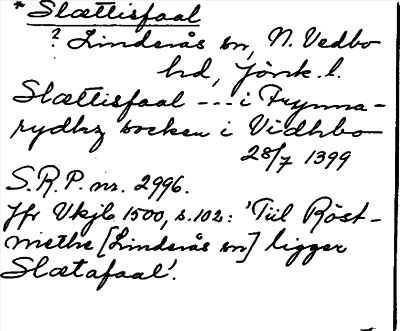 * Slættisfaal
? Linderås sn, N. Vedbo
hd, Jönk. l.
Slættisfaal --- i Frynna-
rydhz socken i Vidhbo
28/7 1399
S.R.P. nr. 2996.
Jfr Vkjb 1500, s. 102: 'Tiil Röst-
miethe [Linderås sn] ligger
Slætafaal'.